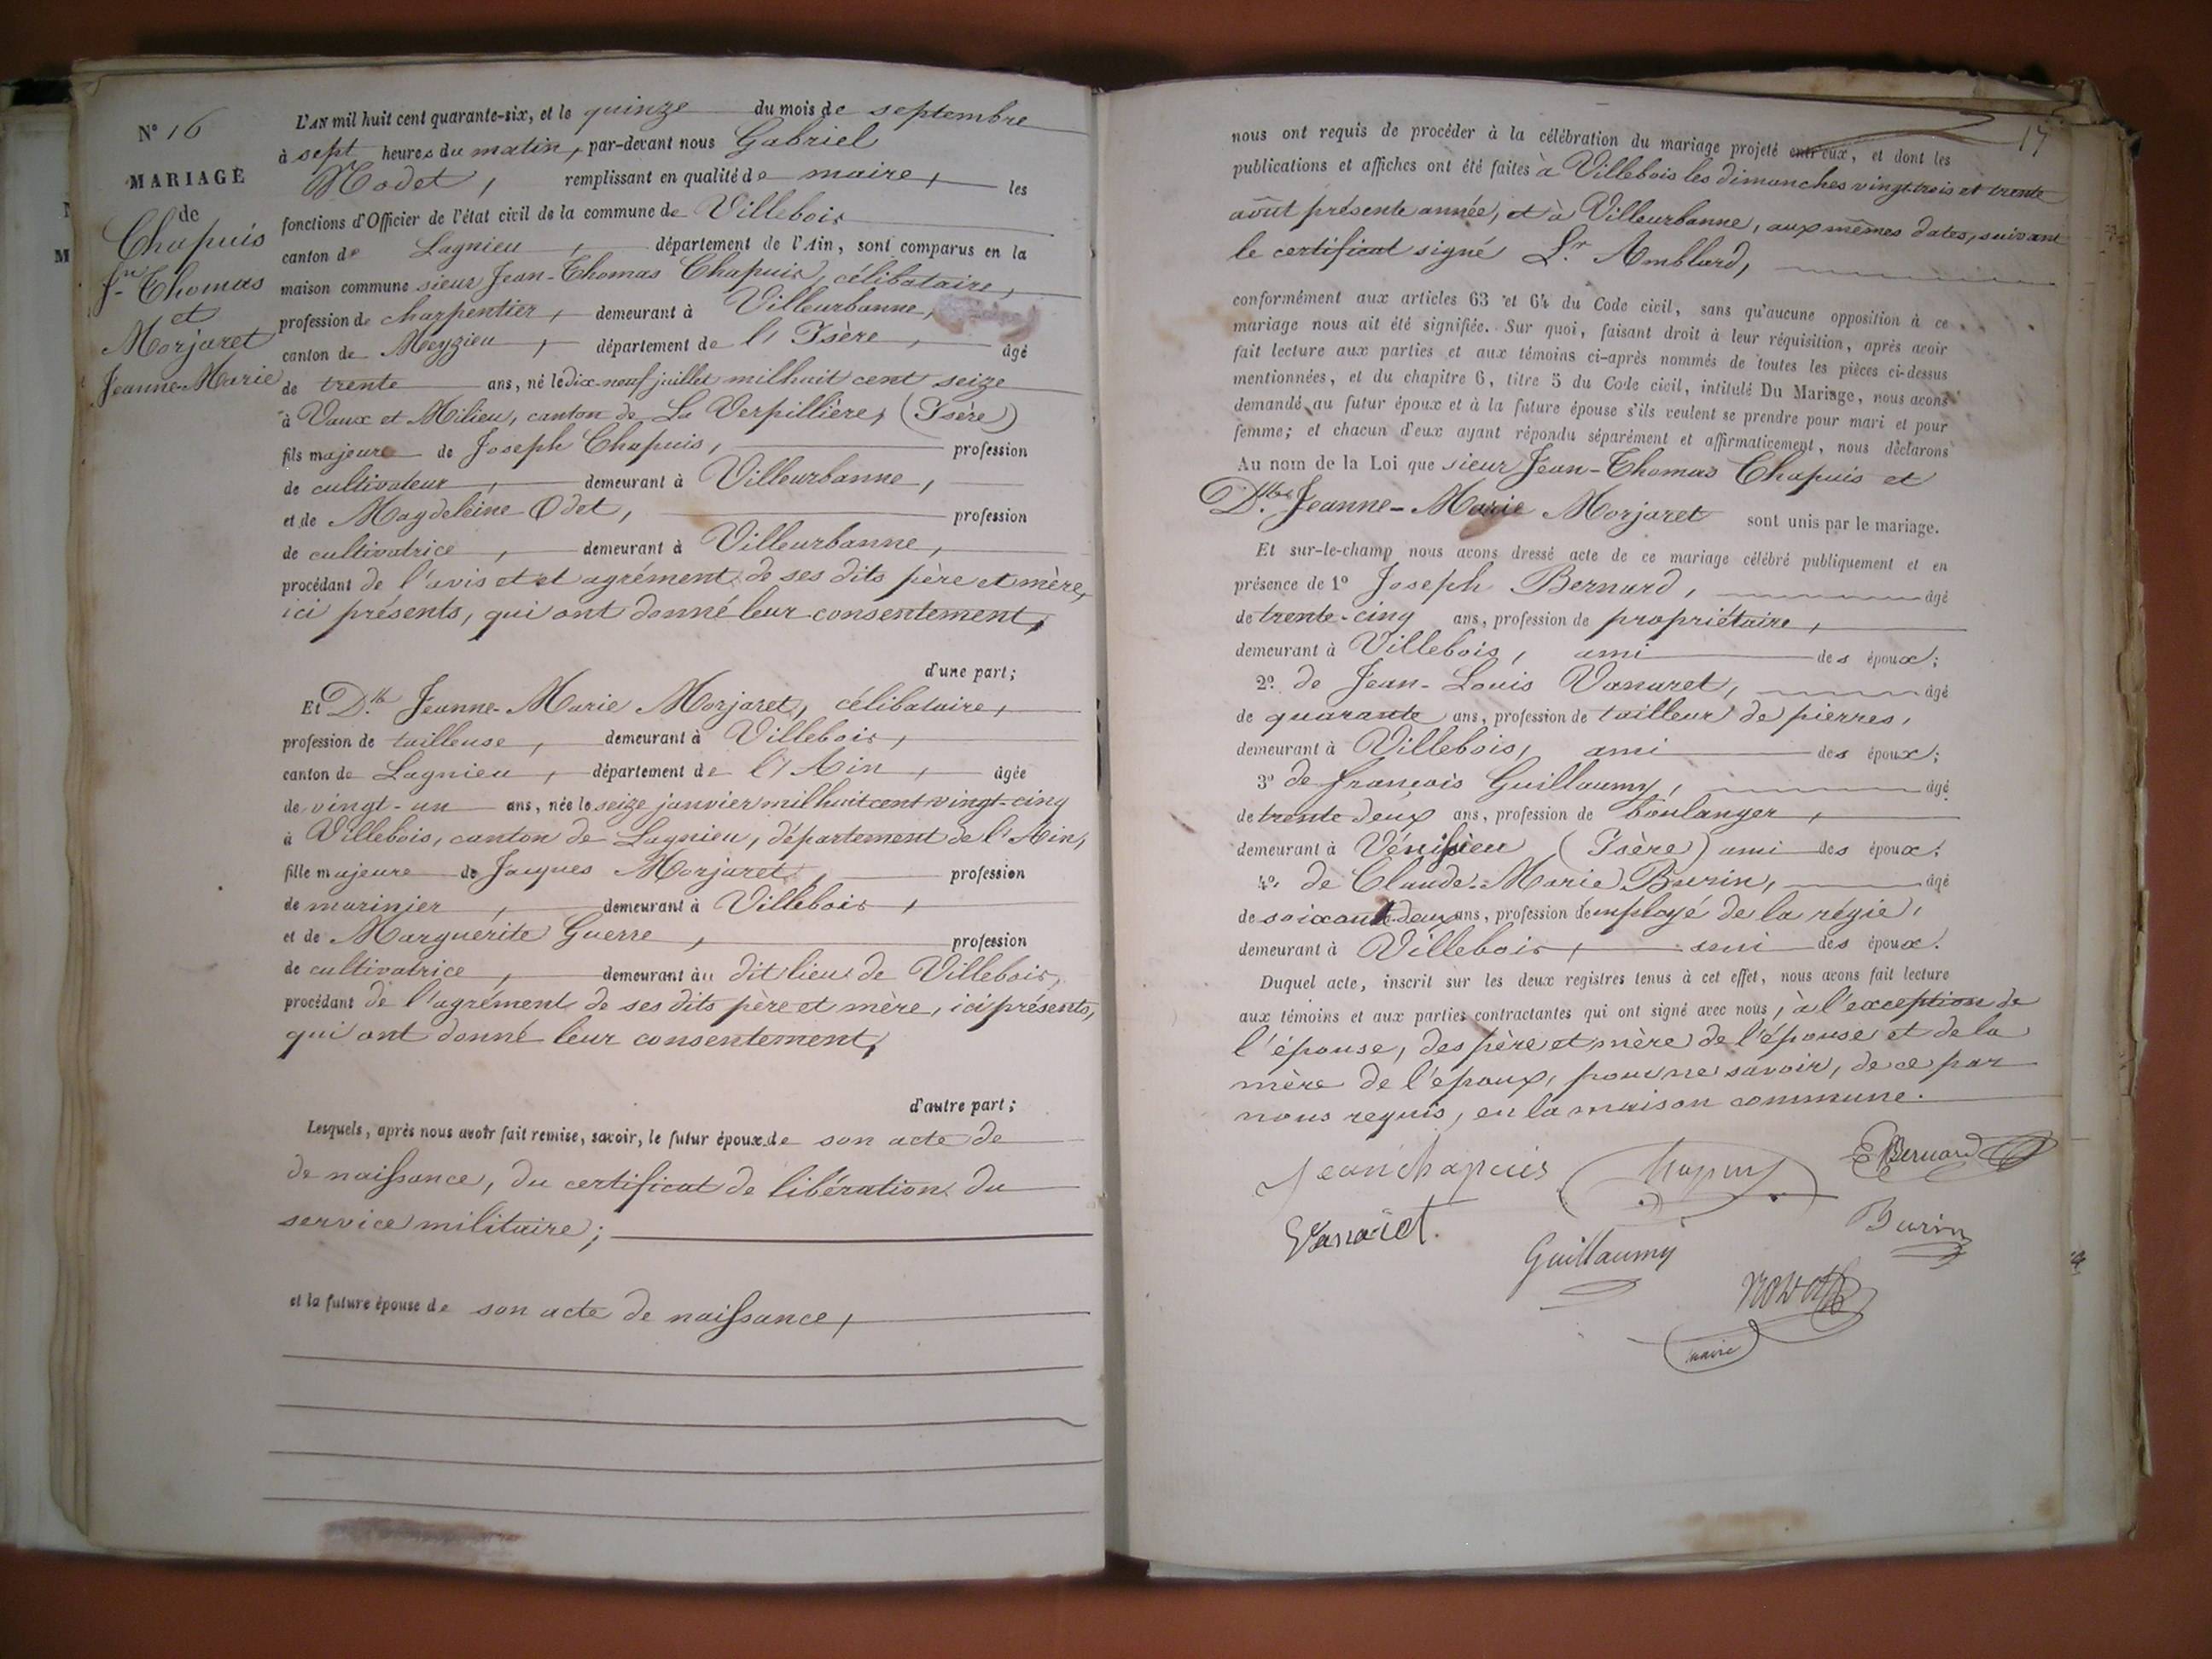 N° 16
MARIAGE
de
Chapuis
Jn Thomas
et
Morjaret
Jeanne-Marie
L'AN mil huit cent quarante-six, et le quinze du mois de septembre
à sept heures du matin, par-devant nous Gabriel
Nodet, remplissant en qualité de maire, les
fonctions d'Officier de l'état civil de la commune de Villebois
canton de Lagnieu, département de l'Ain, sont comparus en la
maison commune sieur Jean-Thomas Chapuis, célibataire,
profession de charpentier, demeurant à Villeurbanne,
canton de Meyzieu, département de l'Isère, âgé
de trente ans, né le dix-neuf juillet mil huit cent seize
à Vaux et Milieu, canton de La Verpillière, (Isère)
fils majeur de Joseph Chapuis, profession
de cultivateur, demeurant à Villeurbanne,
et de Magdeleine Odet, profession
de cultivatrice, demeurant à Villeurbanne,
procédant de l'avis et et agrément de ses dits père et mère,
ici présents, qui ont donné leur consentement,
d'une part;
Et Dlle Jeanne-Marie Morjaret, célibataire,
profession de tailleuse, demeurant à Villebois,
canton de Lagnieu, département de l'Ain, âgée
de vingt-un ans, née le seize janvier mil huit cent vingt-cinq
à Villebois, canton de Lagnieu, département de l'Ain,
fille majeure de Jacques Morjaret, profession
de marinier, demeurant à Villebois,
et de Marguerite Guerre, profession
de cultivatrice, demeurant au dit lieu de Villebois,
procédant de l'agrément de ses dits père et mère, ici présents,
qui ont donné leur consentement,
d'autre part;
Lesquels, après nous avoir fait remise, savoir, le futur époux de son acte de
de naissance, du certificat de libération du
service militaire;
et la future épouse de son acte de naissance,
17
nous ont requis de procéder à la célébration du mariage projeté entr'eux, et dont les
publications et affiches ont été faites à Villebois les dimanches vingt-trois et trente
août présente année, et à Villeurbanne, aux mêmes dates, suivant
le certificat signé Lr Amblard,
conformément aux articles 63 et 64 du Code civil, sans qu'aucune opposition à ce
mariage nous ait été signifiée. Sur quoi, faisant droit à leur réquisition, après avoir
fait lecture aux parties et aux témoins ci-après nommés de toutes les pièces ci-dessus
mentionnées, et du chapitre 6, titre 5 du Code civil, intitulé Du Mariage, nous avons
demandé au futur époux et à la future épouse s'ils veulent se prendre pour mari et pour
femme; et chacun d'eux ayant répondu séparément et affirmativement, nous déclarons
Au nom de la Loi que sieur Jean-Thomas Chapuis et
Dlle Jeanne-Marie Morjaret sont unis par le mariage.
Et sur-le-champ nous avons dressé acte de ce mariage célébré publiquement et en
présence de 1° Joseph Bernard, âgé
de trente-cinq ans, profession de propriétaire,
demeurant à Villebois, ami des époux;
2° de Jean-Louis Vanaret, âgé
de quarante ans, profession de tailleur de pierres,
demeurant à Villebois, ami des époux;
3° de françois Guillaumy, âgé
de trente deux ans, profession de boulanger,
demeurant à Vénissieu (Isère) ami des époux;
4° de Claude-Marie Burin, âgé
de soixante-deux ans, profession d'employé de la régie,
demeurant à Villebois, ami des époux.
Duquel acte, inscrit sur les deux registres tenus à cet effet, nous avons fait lecture
aux témoins et aux parties contractantes qui ont signé avec nous, à l'exception de
l'épouse, des père et mère de l'épouse et de la
mère de l'époux, pour ne savoir, de ce par
nous requis, en la maison commune.
Jean chapuis Chapuis Bernard
Vanaret. Guillaumy Burin
Nodet
maire